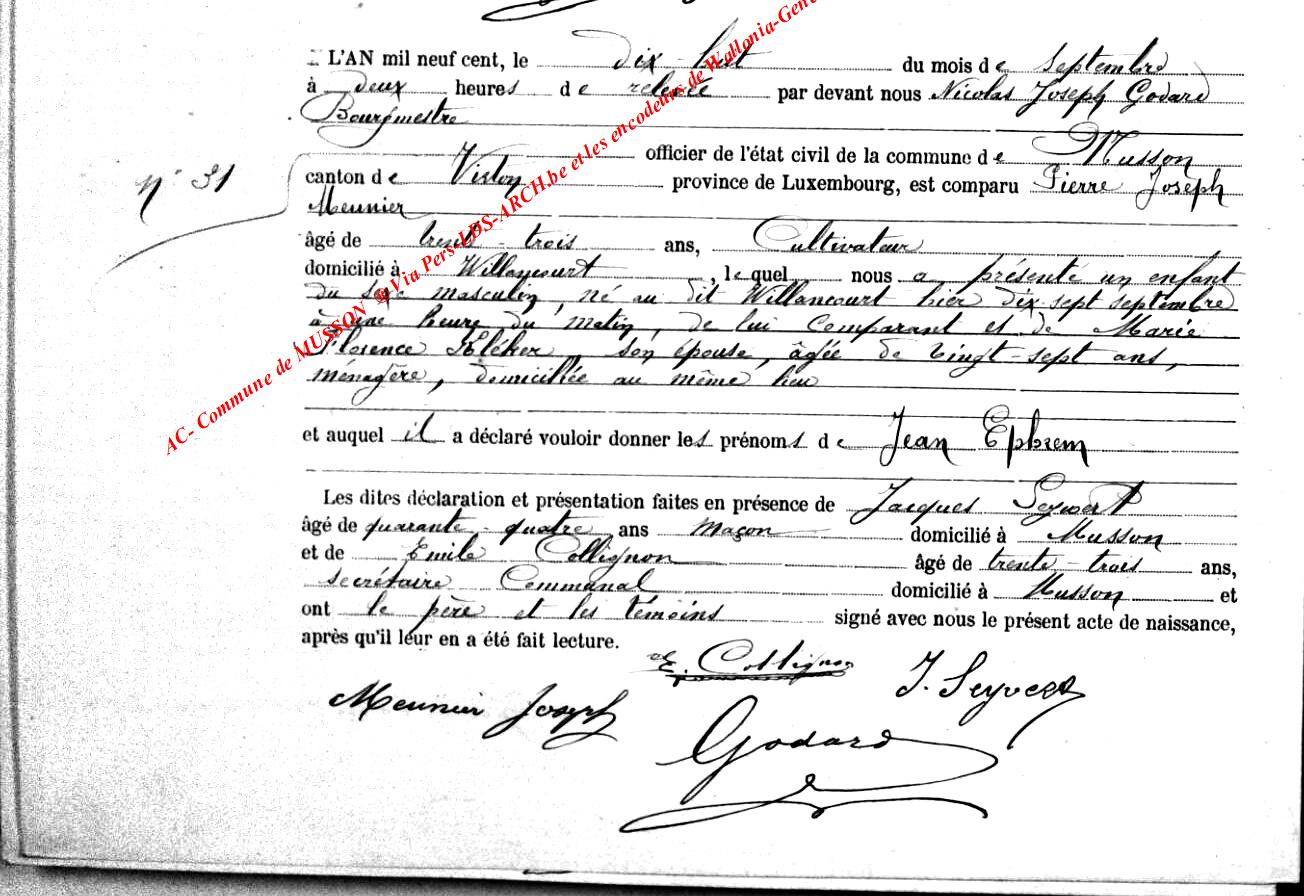 L'AN mil neuf cent, le dix-huit du mois de Septembre
à deux heures de relevée par devant nous Nicolas Joseph Godard
Bourgmestre
officier de l'état civil de la commune de Musson
n° 31
canton de Virton province de Luxembourg, est comparu Pierre Joseph
Meunier
âgé de trente-trois ans, Cultivateur
domicilié à Willancourt, lequel nous a présenté un enfant
du sexe masculin, né au dit Willancourt hier dix sept septembre
à une heure du matin, de lui Comparant et de Marie
Florence Kléker, son épouse, âgée de vingt-sept ans,
ménagère, domiciliée au même lieu
et auquel il a déclaré vouloir donner les prénoms de Jean Ephrem
Les dites déclaration et présentation faites en présence de Jacques Seywert
âgé de quarante-quatre ans maçon domicilié à Musson
et de Emile Collignon âgé de trente-trois ans,
secrétaire Communal domicilié à Musson et
ont le père et les témoins signé avec nous le présent acte de naissance,
après qu'il leur en a été fait lecture.
E. Collignon
J. Seywert
Meunier Joseph
Godard
AC- Commune de MUSSON @ Via Pers-LDS-ARCH.be et les encodeurs de Wallonia-Gene